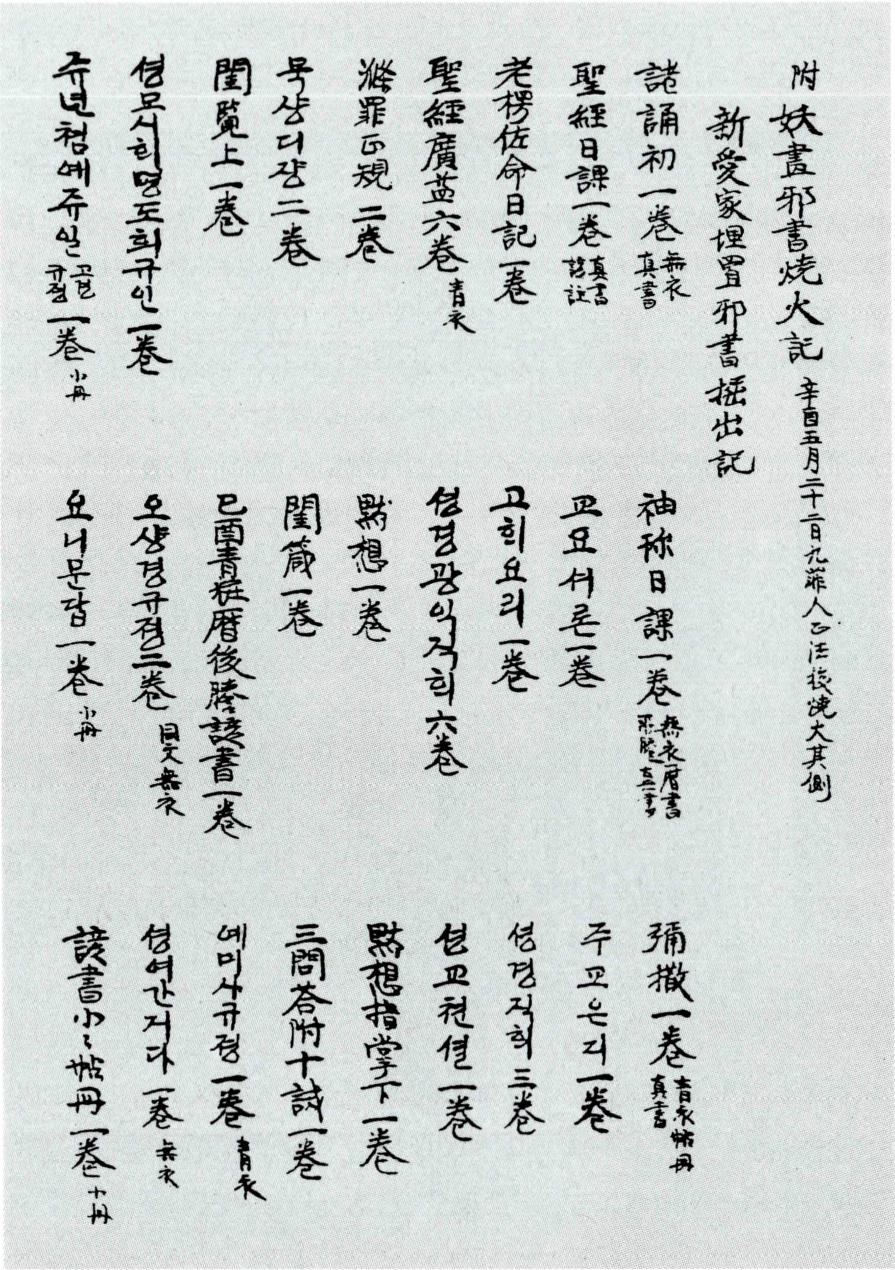 附 妖畫邪書燒火記 辛酉五月二十二日九罪人正法後燒火其側
新愛家埋置邪書掘出記
諸誦初一卷 無衣 真書
袖珎日課一卷 無衣曆書 真書
彌撒一卷 青衣帖冊 真書
聖經日課一卷 真書 諺註
교요셔론一卷
주교은지一卷
老楞佐命日記一卷
고희요리一卷
셩경직희三卷
聖經廣益六卷 青衣
셩경광익직희六卷
셩교쳔셜一卷
滌罪正規二卷
黙想一卷
黙想指掌下一卷
묵샹디쟝二卷
閨箴一卷
三問答附十誡一卷
閨覽上一卷
己酉青粧曆後謄諺書一卷
예미사규졍一卷 青衣
셩모시희명도희규인一卷
오샹경규졍二卷 目文 無衣
셩여간지다一卷 無衣
쥬년쳠예쥬일 규졍 一卷 小冊
요니문답一卷 小冊
諺書小々帖冊一卷 小冊